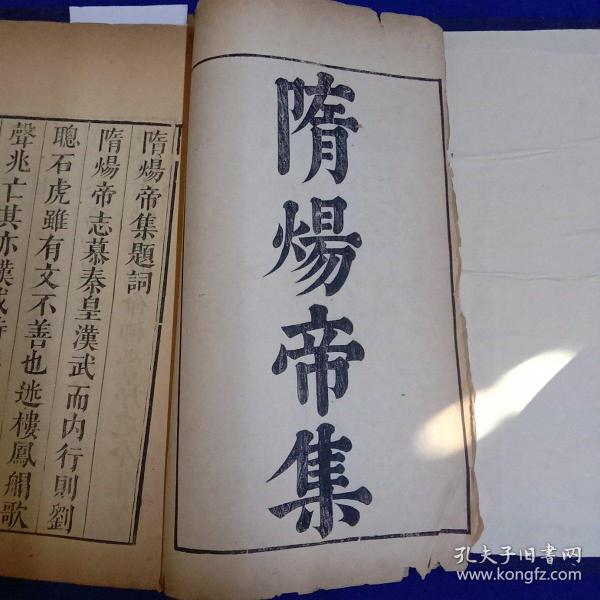 隋煬帝集
隋煬帝集題詞
隋煬帝志慕秦皇漢武而内行則劉
聰石虎雖有文不善也迷樓鳳艒歌
聲兆亡其亦漢成
孔夫子旧书网
www.kongfz.com